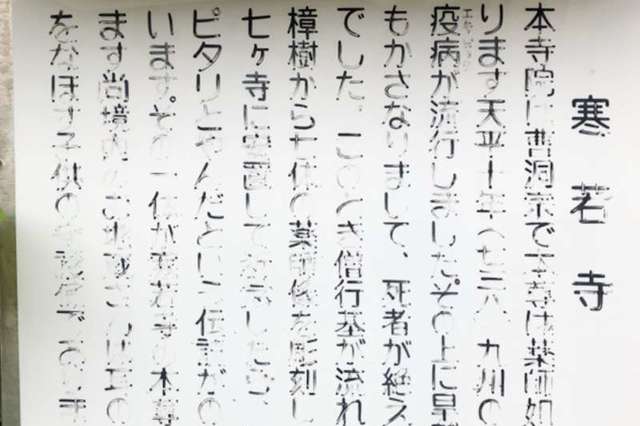 寒若寺
本寺院は曹洞宗で本尊は薬師如
ります天平十年(七三八)九州の
疫病が流行しましたその上に旱
もかさなりまして、死者が絶え
でした、このとき僧行基が流れ
樟樹から七体の薬師像を彫刻し
七ヶ寺に安置して祈
したら
ピタリとやんだという伝説がの
います。その一体が寒若寺の本尊
ます尚境内のお地蔵さんは耳の
をなほす子供の